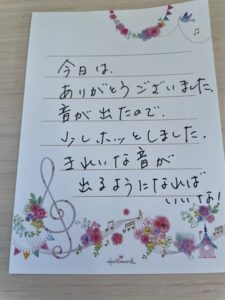 今日は、
ありがとうございました。
音が出たので、
少しホッとしました。
きれいな音が
出るようになれば
いいな!
Hallmark